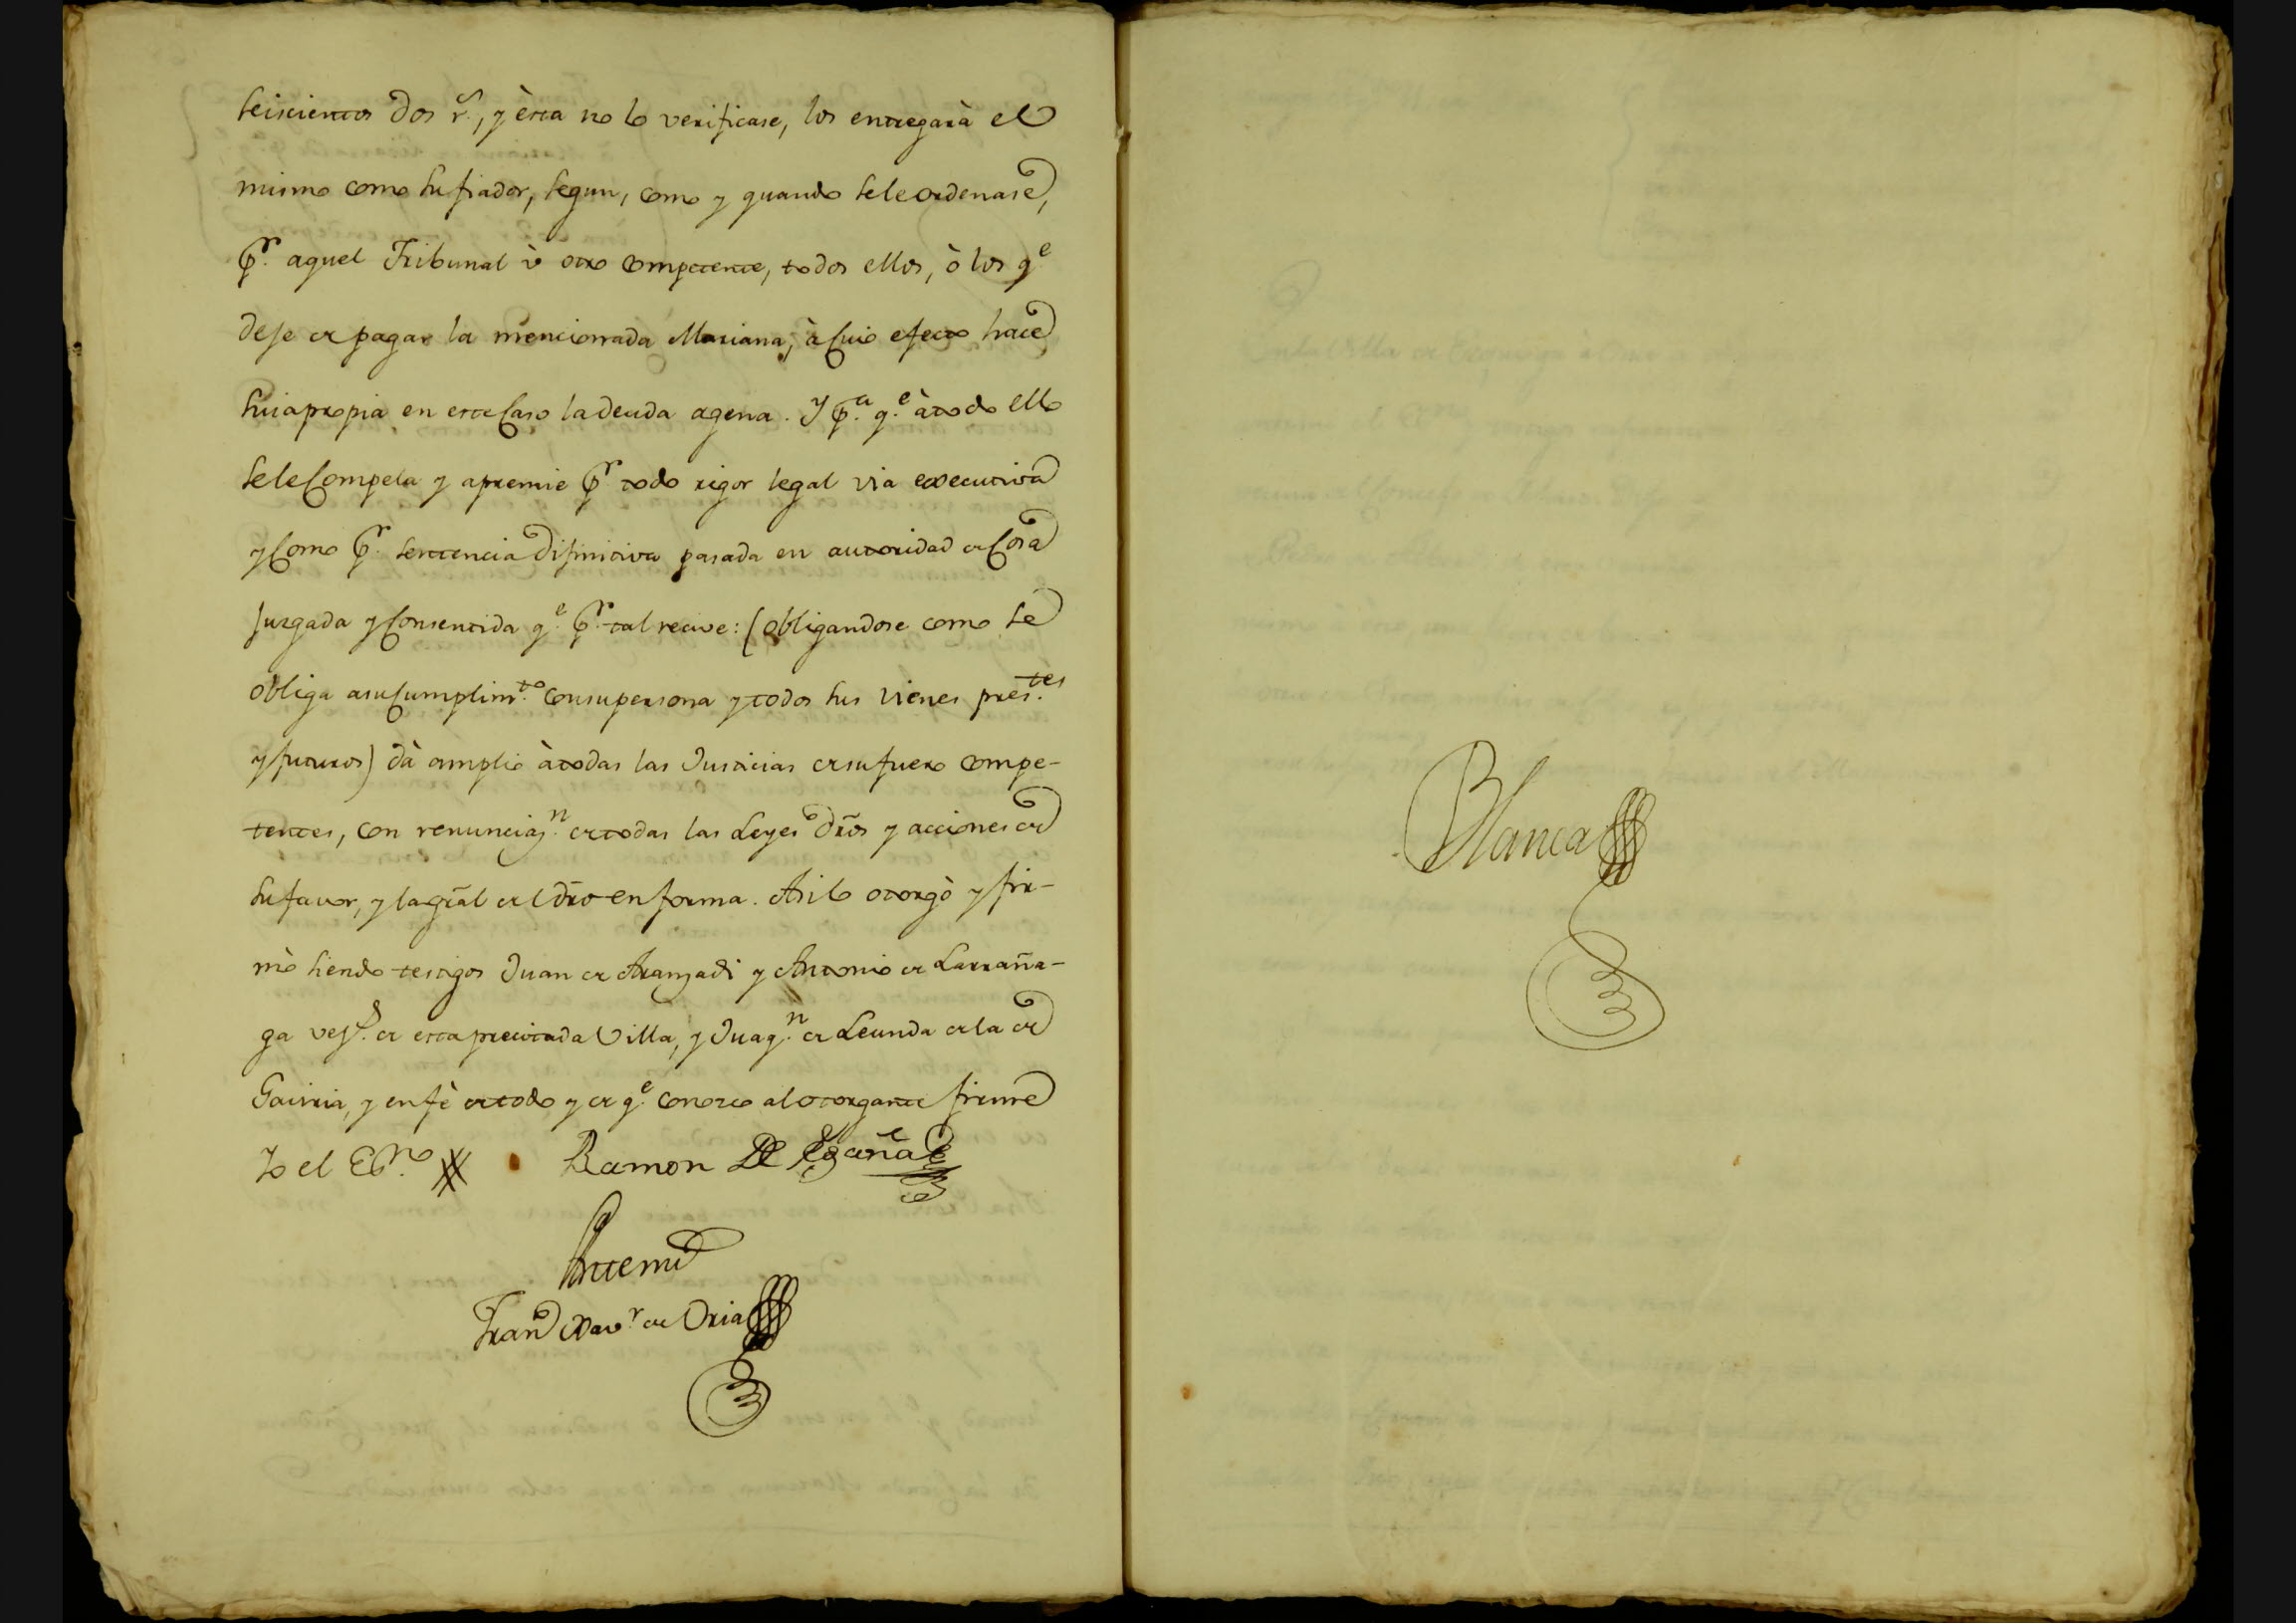 seiscientos dos r.s, y èsta no lo verificase, los entregarà el
mismo como su fiador, segun, como y quando se le ordenase,
p.r aquel Tribunal ù otro competente, todos ellos, ò los q.e
deje de pagar la mencionada Mariana, à cuio efecto hace
suia propia en este caso la deuda agena. Y p.a q.e à todo ello
se le compela y apremie p.r todo rigor legal via executiva
y como p.r sentencia difinitiva pasada en autoridad de cosa
juzgada y consentida q.e p.r tal recive: (obligandose como se
obliga a su cumplim.to con su persona y todos sus vienes pres.tes
y futuros) dà amplio à todas las Justicias de su fuero compe-
tentes, con renunciaz.n de todas las Leyes dr̃os y acciones de
su favor, y la gr̃al del dr̃o en forma. Asi lo otorgò y fir-
mò siendo testigos Juan de Aranzadi y Antonio de Larraña-
ga vez.s de esta precitada Villa, y Juaq.n de Leunda de la de
Gainria, y en fè de todo y de q.e conozco al otorgante firme
Yo el Es.no
Ramon De Egaña
Antemi
Fran.co Xav.r de Oria
Blanca